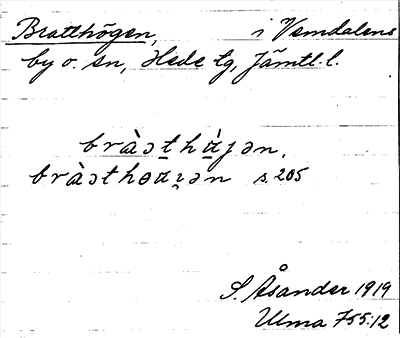 Bratthögen, i Vemdalens
by o. sn, Hede tg, Jämtl. l.
bràət̠hὰ̠jən.
bràəthɵαı̯ən s. 205
S. Åsander 1919
Ulma 755:12